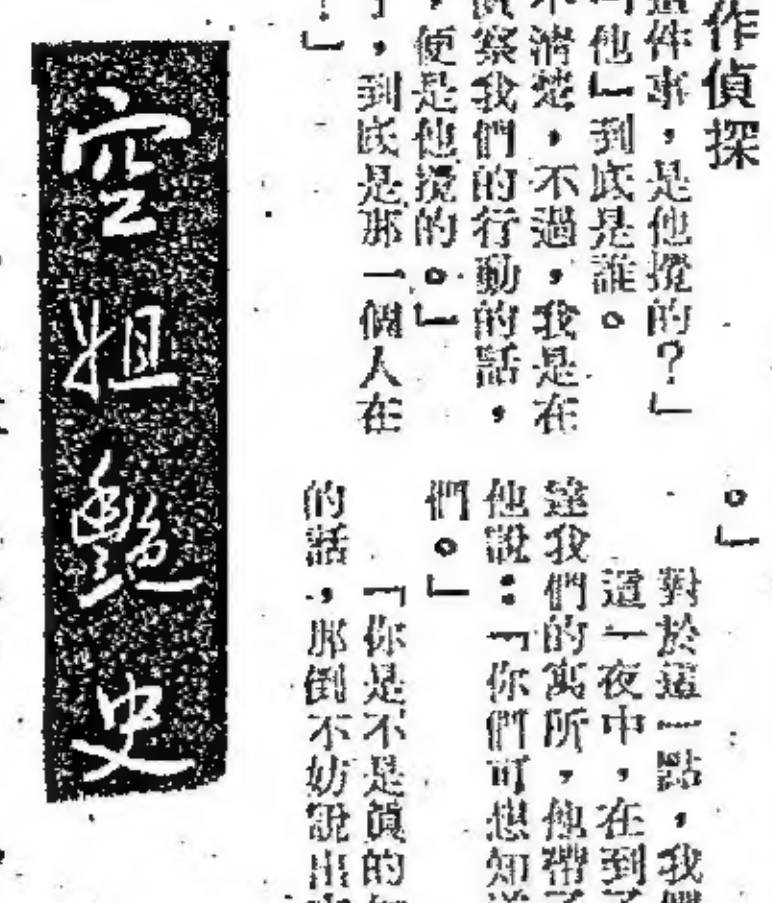 作偵探
這件事，是他攪的？」
他」到底是誰。
不清楚，不過，我是在
偵察我們的行動的話，
，便是他攪的。」
，到底是那一個人在
？」
。」
對於這一點，我們
這一夜中，在到了
達我們的寓所，他帶了
他說：「你們可想知道
們。」
「你是不是真的知
的話，那倒不妨說出來
空姐艷史